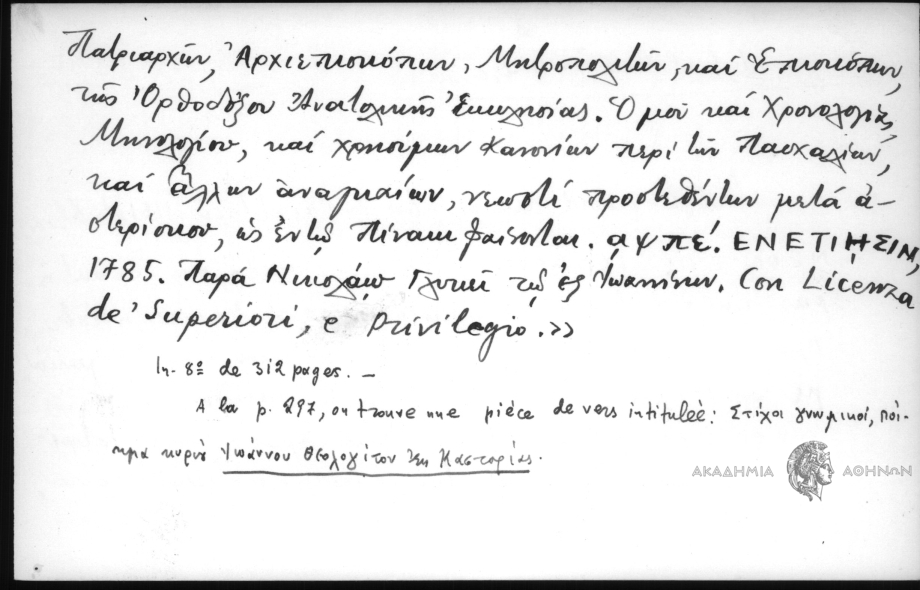 Πατριαρχῶν, Ἀρχιεπισκόπων, Μητροπολιτῶν, καί Ἐπισκόπων,
τῆς Ὀρθοδόξου Ἀνατολικῆς Ἐκκλησίας. Ὁμοῦ καί Χρονολογίας,
Μηνολογίου, καί χρησίμων Κανονίων περί τῶν Πασχαλίων,
καί ἄλλων ἀναγκαίων, νεωστί προστεθέντων μετά ἀ-
στερίσκου, ὡς ἐν τῷ Πίνακι φαίνονται. αψπέ. ΕΝΕΤΙΗΣΙΝ,
1785. Παρά Νικολάῳ Γλυκεῖ τῷ ἐξ Ἰωαννίνων. Con Licenza
de' Superiori, e Privilegio.>>
In-8º de 312 pages. —
A la p. 297, on trouve une pièce de vers intitulée: Στίχοι γνωμικοί, ποί-
ημα κυροῦ Ἰωάννου Θεολογίτου ἐκ Καστορίας.
ΑΚΑΔΗΜΙΑ ΑΘΗΝΩΝ